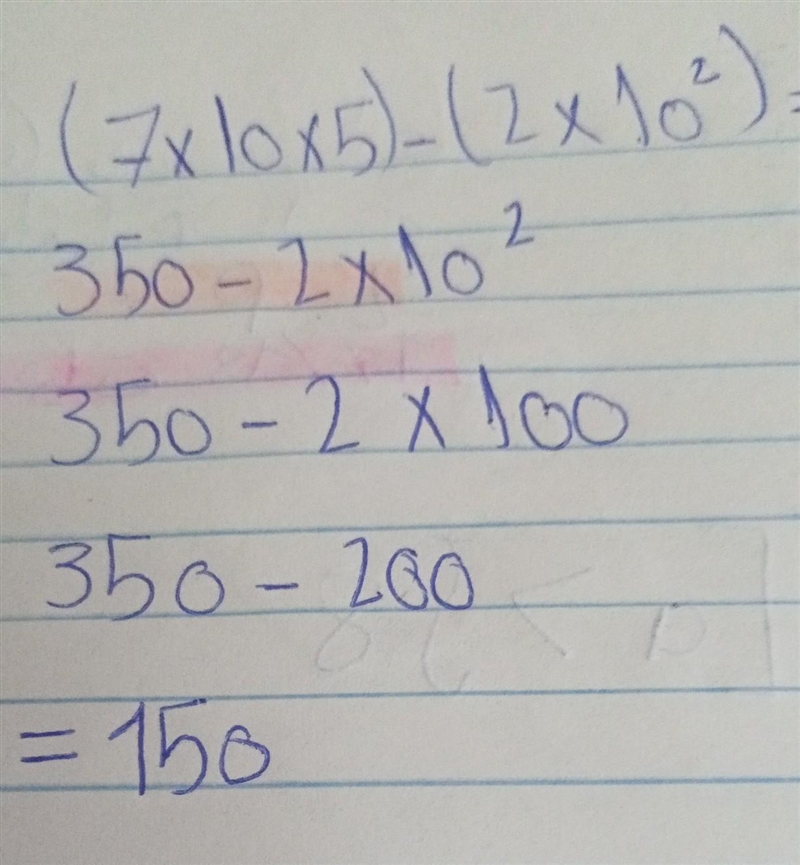 (7x10x5)-(2x10²)=
350-2x10²
350-2x100
350-200
=150